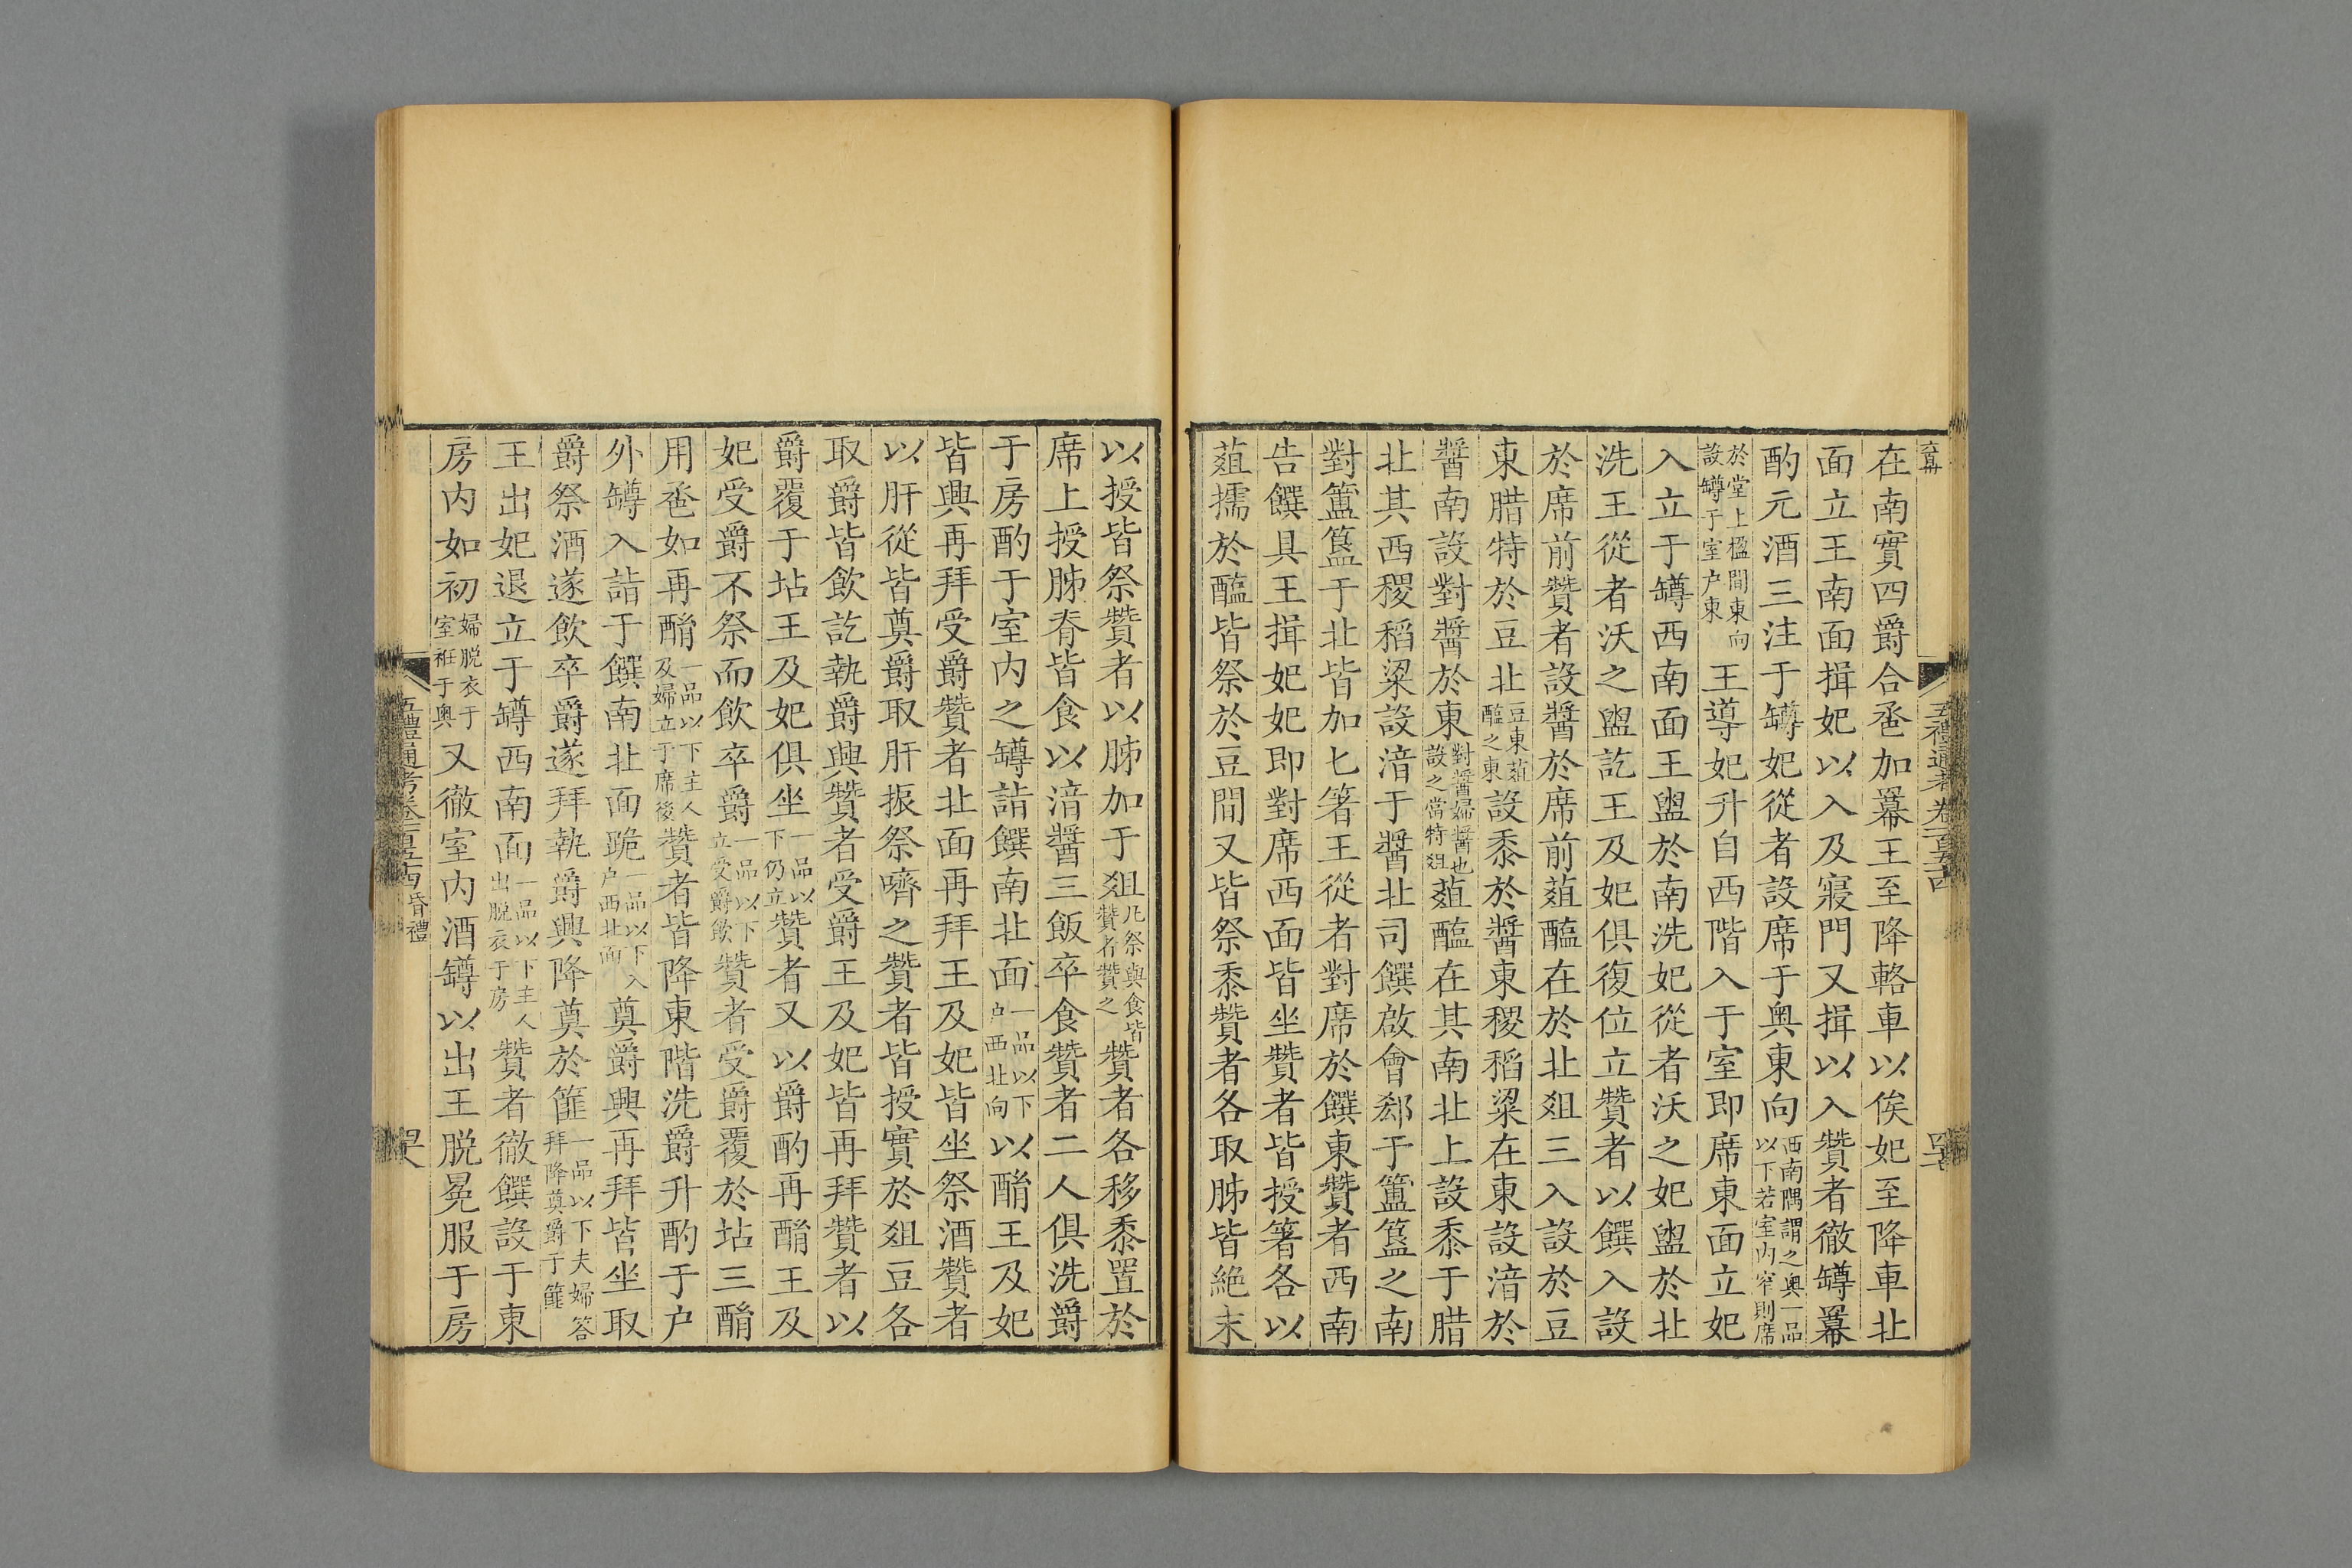 在南實四爵合巹加羃王至降輅車以俟妃至降車北
面立王南面揖妃以入及寢門又揖以入贊者徹罇羃
酌元酒三注于罇妃從者設席于奧東向西南隅謂之奧一品以下若室內窄則席
於堂上楹間東向設罇于室户東王導妃升自西階入于室即席東面立妃
入立于罇西南面王盥於南洗妃從者沃之妃盥於北
洗王從者沃之盥訖王及妃俱復位立贊者以饌入設
於席前贊者設醬於席前菹醢在於北俎三入設於豆
東腊特於豆北豆東菹醢之東設黍於醬東稷稻粱在東設湆於
醬南設對醬於東對醬婦醬也設之當特俎菹醢在其南北上設黍于腊
北其西稷稻粱設湆于醬北司饌啟會郤于簠簋之南
對簠簋于北皆加匕箸王從者對席於饌東贊者西南
告饌具王揖妃妃即對席西面皆坐贊者皆授箸各以
菹擩於醢皆祭於豆間又皆祭黍贊者各取胏皆絕末
以授皆祭贊者以胏加于俎凡祭與食皆贊者贊之贊者各移黍置於
席上授胏脊皆食以湆醬三飯卒食贊者二人俱洗爵
于房酌于室內之罇詣饌南北面一品以下户西北向以酳王及妃
皆興再拜受爵贊者北面再拜王及妃皆坐祭酒贊者
以肝從皆奠爵取肝振祭嚌之贊者皆授實於俎豆各
取爵皆飲訖執爵興贊者受爵王及妃皆再拜贊者以
爵覆于坫王及妃俱坐一品以下仍立贊者又以爵酌再酳王及
妃受爵不祭而飲卒爵一品以下立受爵飲贊者受爵覆於坫三酳
用巹如再酳一品以下主人及婦立于席後贊者皆降東階洗爵升酌于户
外罇入詣于饌南北面跪一品以下入户西北面奠爵興再拜皆坐取
爵祭酒遂飲卒爵遂拜執爵興降奠於篚一品以下夫婦答拜降奠爵于篚
王出妃退立于罇西南面一品以下主人出脫衣于房贊者徹饌設于東
房內如初婦脫衣于室袵于奧又徹室內酒罇以出王脫冕服于房
五禮通考卷一百五十四昏禮